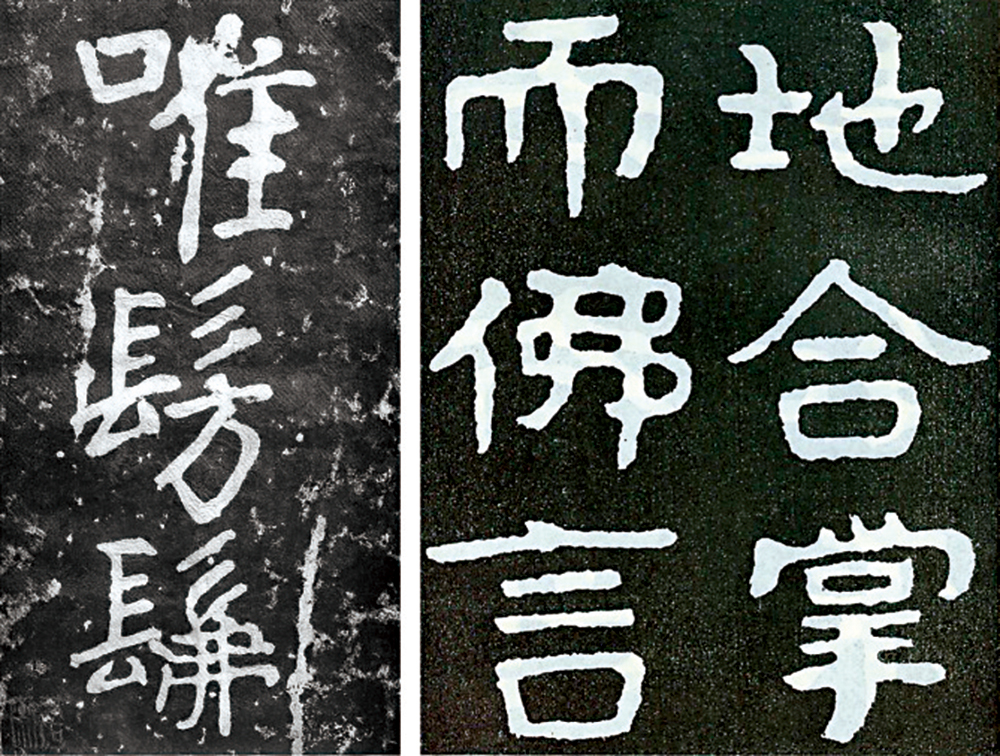 唯髣髴
地合掌
而佛言